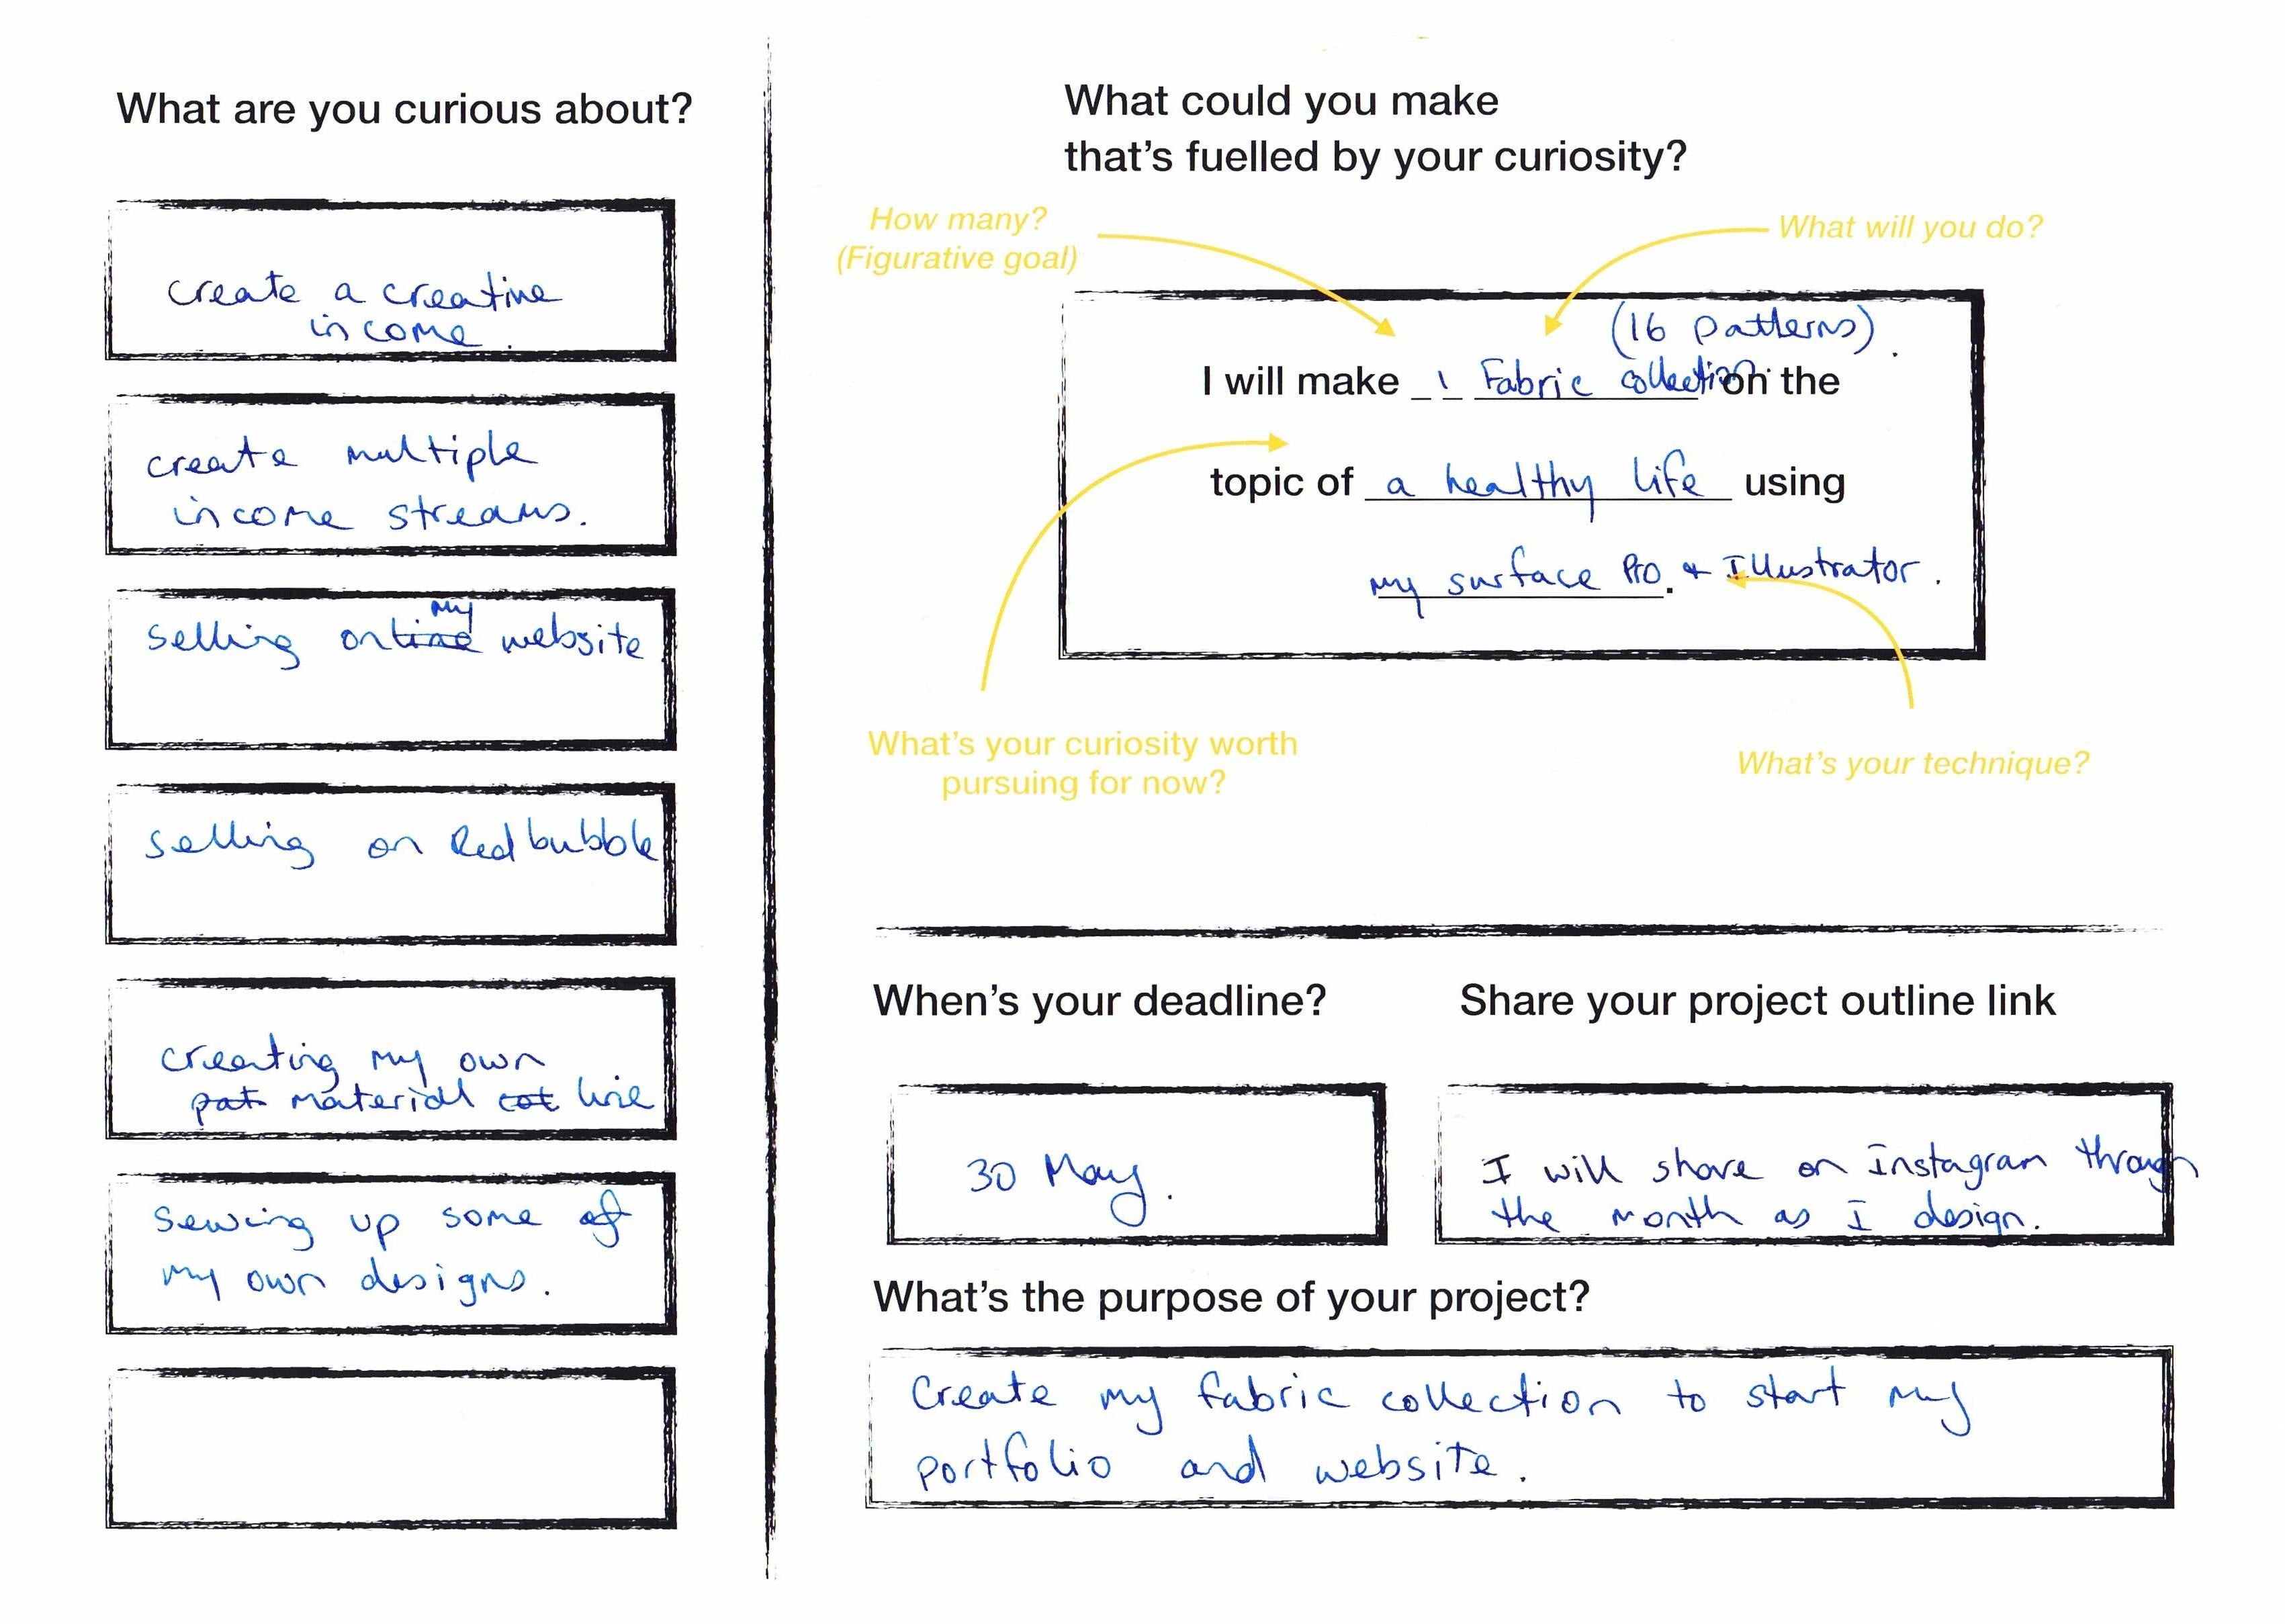 What are you curious about?
create a creative
income.
create multiple
income streams.
my
selling online website
selling on Redbubble
creating my own
pat material cot line
sewing up some of
my own designs.
What could you make
that's fuelled by your curiosity?
How many?
(Figurative goal)
What will you do?
(16 patterns).
I will make 1 Fabric collection on the
topic of a healthy life using
my surface Pro. & Illustrator.
What's your curiosity worth
pursuing for now?
What's your technique?
When's your deadline?
30 May.
Share your project outline link
I will share on Instagram through
the month as I design.
What's the purpose of your project?
Create my fabric collection to start my
portfolio and website.